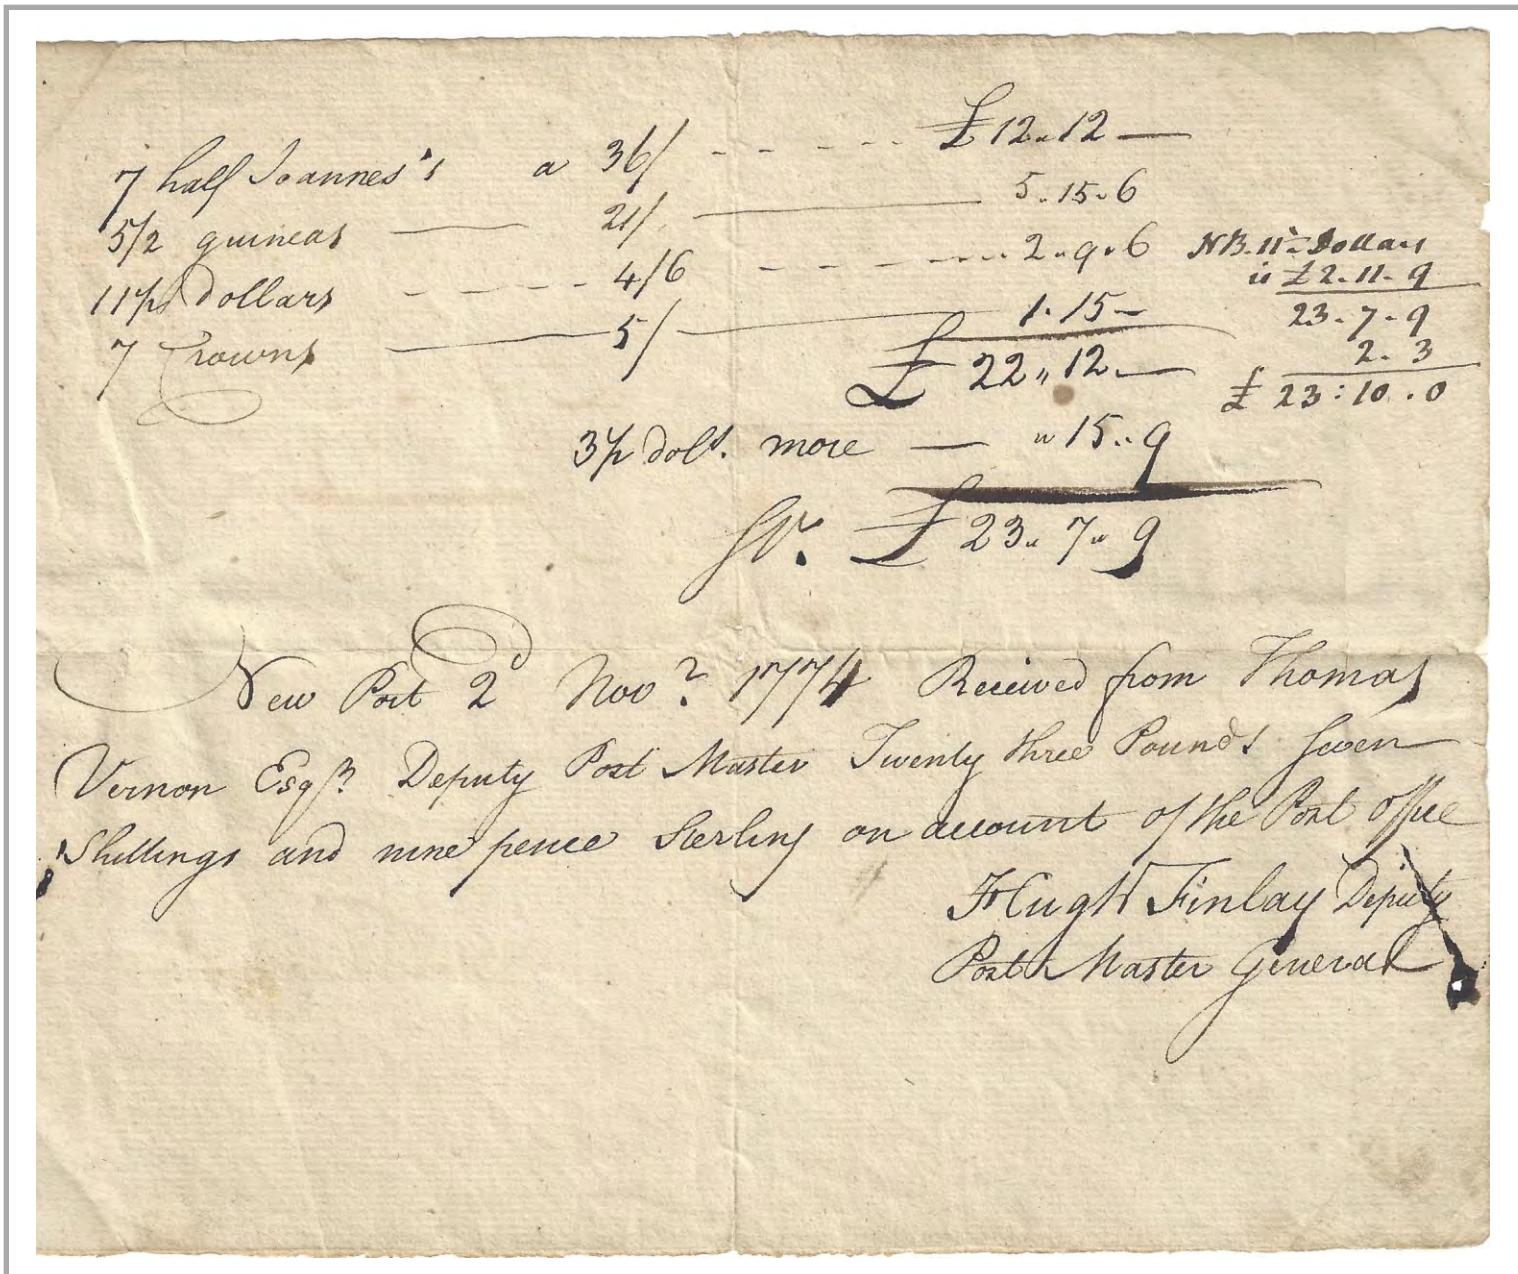 7 half Joannes's a 36/ - - - - - £12"12 —
5/2 guineas — 21/ — 5"15"6
11 1/2 dollars - - - - 4/6 - - - - 2"9"6
7 Crowns — 5/ — 1"15 —
£ 22"12 —
NB. 11 1/2 Dollars
is £2-11-9
23-7-9
2-3
£ 23:10.0
3 1/2 dolls. more — "15"9
Str. £ 23"7"9
New Port 2d Novr. 1774 Received from Thomas
Vernon Esqr. Deputy Post Master Twenty three Pounds Seven
Shillings and nine pence Sterling on account of the Post office
Hugh Finlay Deputy
Post Master General